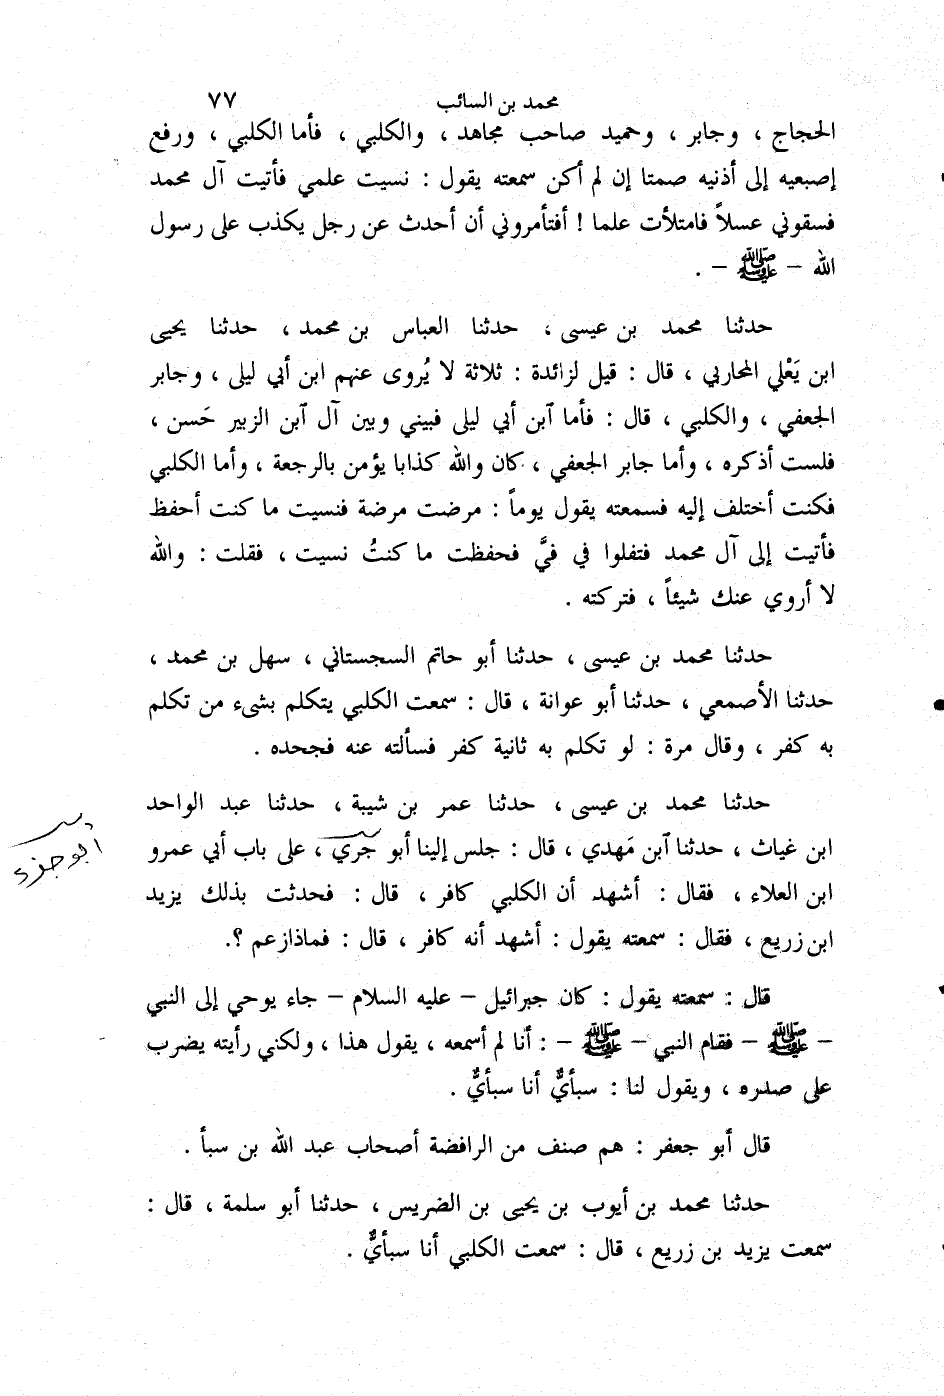 محمد بن السائب ٧٧
الحجاج ، وجابر ، وحميد صاحب مجاهد ، والكلبي ، فأما الكلبي ، ورفع
إصبعيه إلى أذنيه صمتا إن لم أكن سمعته يقول : نسيت علمي فأتيت آل محمد
فسقوني عسلاً فامتلأت علما ! أفتأمروني أن أحدث عن رجل يكذب على رسول
الله – ﷺ – .
حدثنا محمد بن عيسى ، حدثنا العباس بن محمد ، حدثنا يحيى
ابن يَعْلي المحاربي ، قال : قيل لزائدة : ثلاثة لا يُروى عنهم ابن أبي ليلى ، وجابر
الجعفي ، والكلبي ، قال : فأما ٱبن أبي ليلى فبيني وبين آل ٱبن الزبير حَسن ،
فلست أذكره ، وأما جابر الجعفي ، كان والله كذابا يؤمن بالرجعة ، وأما الكلبي
فكنت أختلف إليه فسمعته يقول يوماً : مرضت مرضة فنسيت ما كنت أحفظ
فأتيت إلى آل محمد فتفلوا في فيَّ فحفظت ما كنتُ نسيت ، فقلت : والله
لا أروي عنك شيئاً ، فتركته .
حدثنا محمد بن عيسى ، حدثنا أبو حاتم السجستاني ، سهل بن محمد ،
حدثنا الأصمعي ، حدثنا أبو عوانة ، قال : سمعت الكلبي يتكلم بشىء من تكلم
به كفر ، وقال مرة : لو تكلم به ثانية كفر فسألته عنه فجحده .
حدثنا محمد بن عيسى ، حدثنا عمر بن شيبة ، حدثنا عبد الواحد
ابن غياث ، حدثنا ٱبن مَهدي ، قال : جلس إلينا أبو جَري ، على باب أبي عمرو
أبو جزء
ابن العلاء ، فقال : أشهد أن الكلبي كافر ، قال : فحدثت بذلك يزيد
ابن زريع ، فقال : سمعته يقول : أشهد أنه كافر ، قال : فماذا زعم ؟.
قال : سمعته يقول : كان جبرائيل – عليه السلام – جاء يوحي إلى النبي
– ﷺ – فقام النبي – ﷺ – : أنا لم أسمعه ، يقول هذا ، ولكني رأيته يضرب
على صدره ، ويقول لنا : سبأيٌّ أنا سبأيٌّ .
قال أبو جعفر : هم صنف من الرافضة أصحاب عبد الله بن سبأ .
حدثنا محمد بن أيوب بن يحيى بن الضريس ، حدثنا أبو سلمة ، قال :
سمعت يزيد بن زريع ، قال : سمعت الكلبي أنا سبأيٌّ .